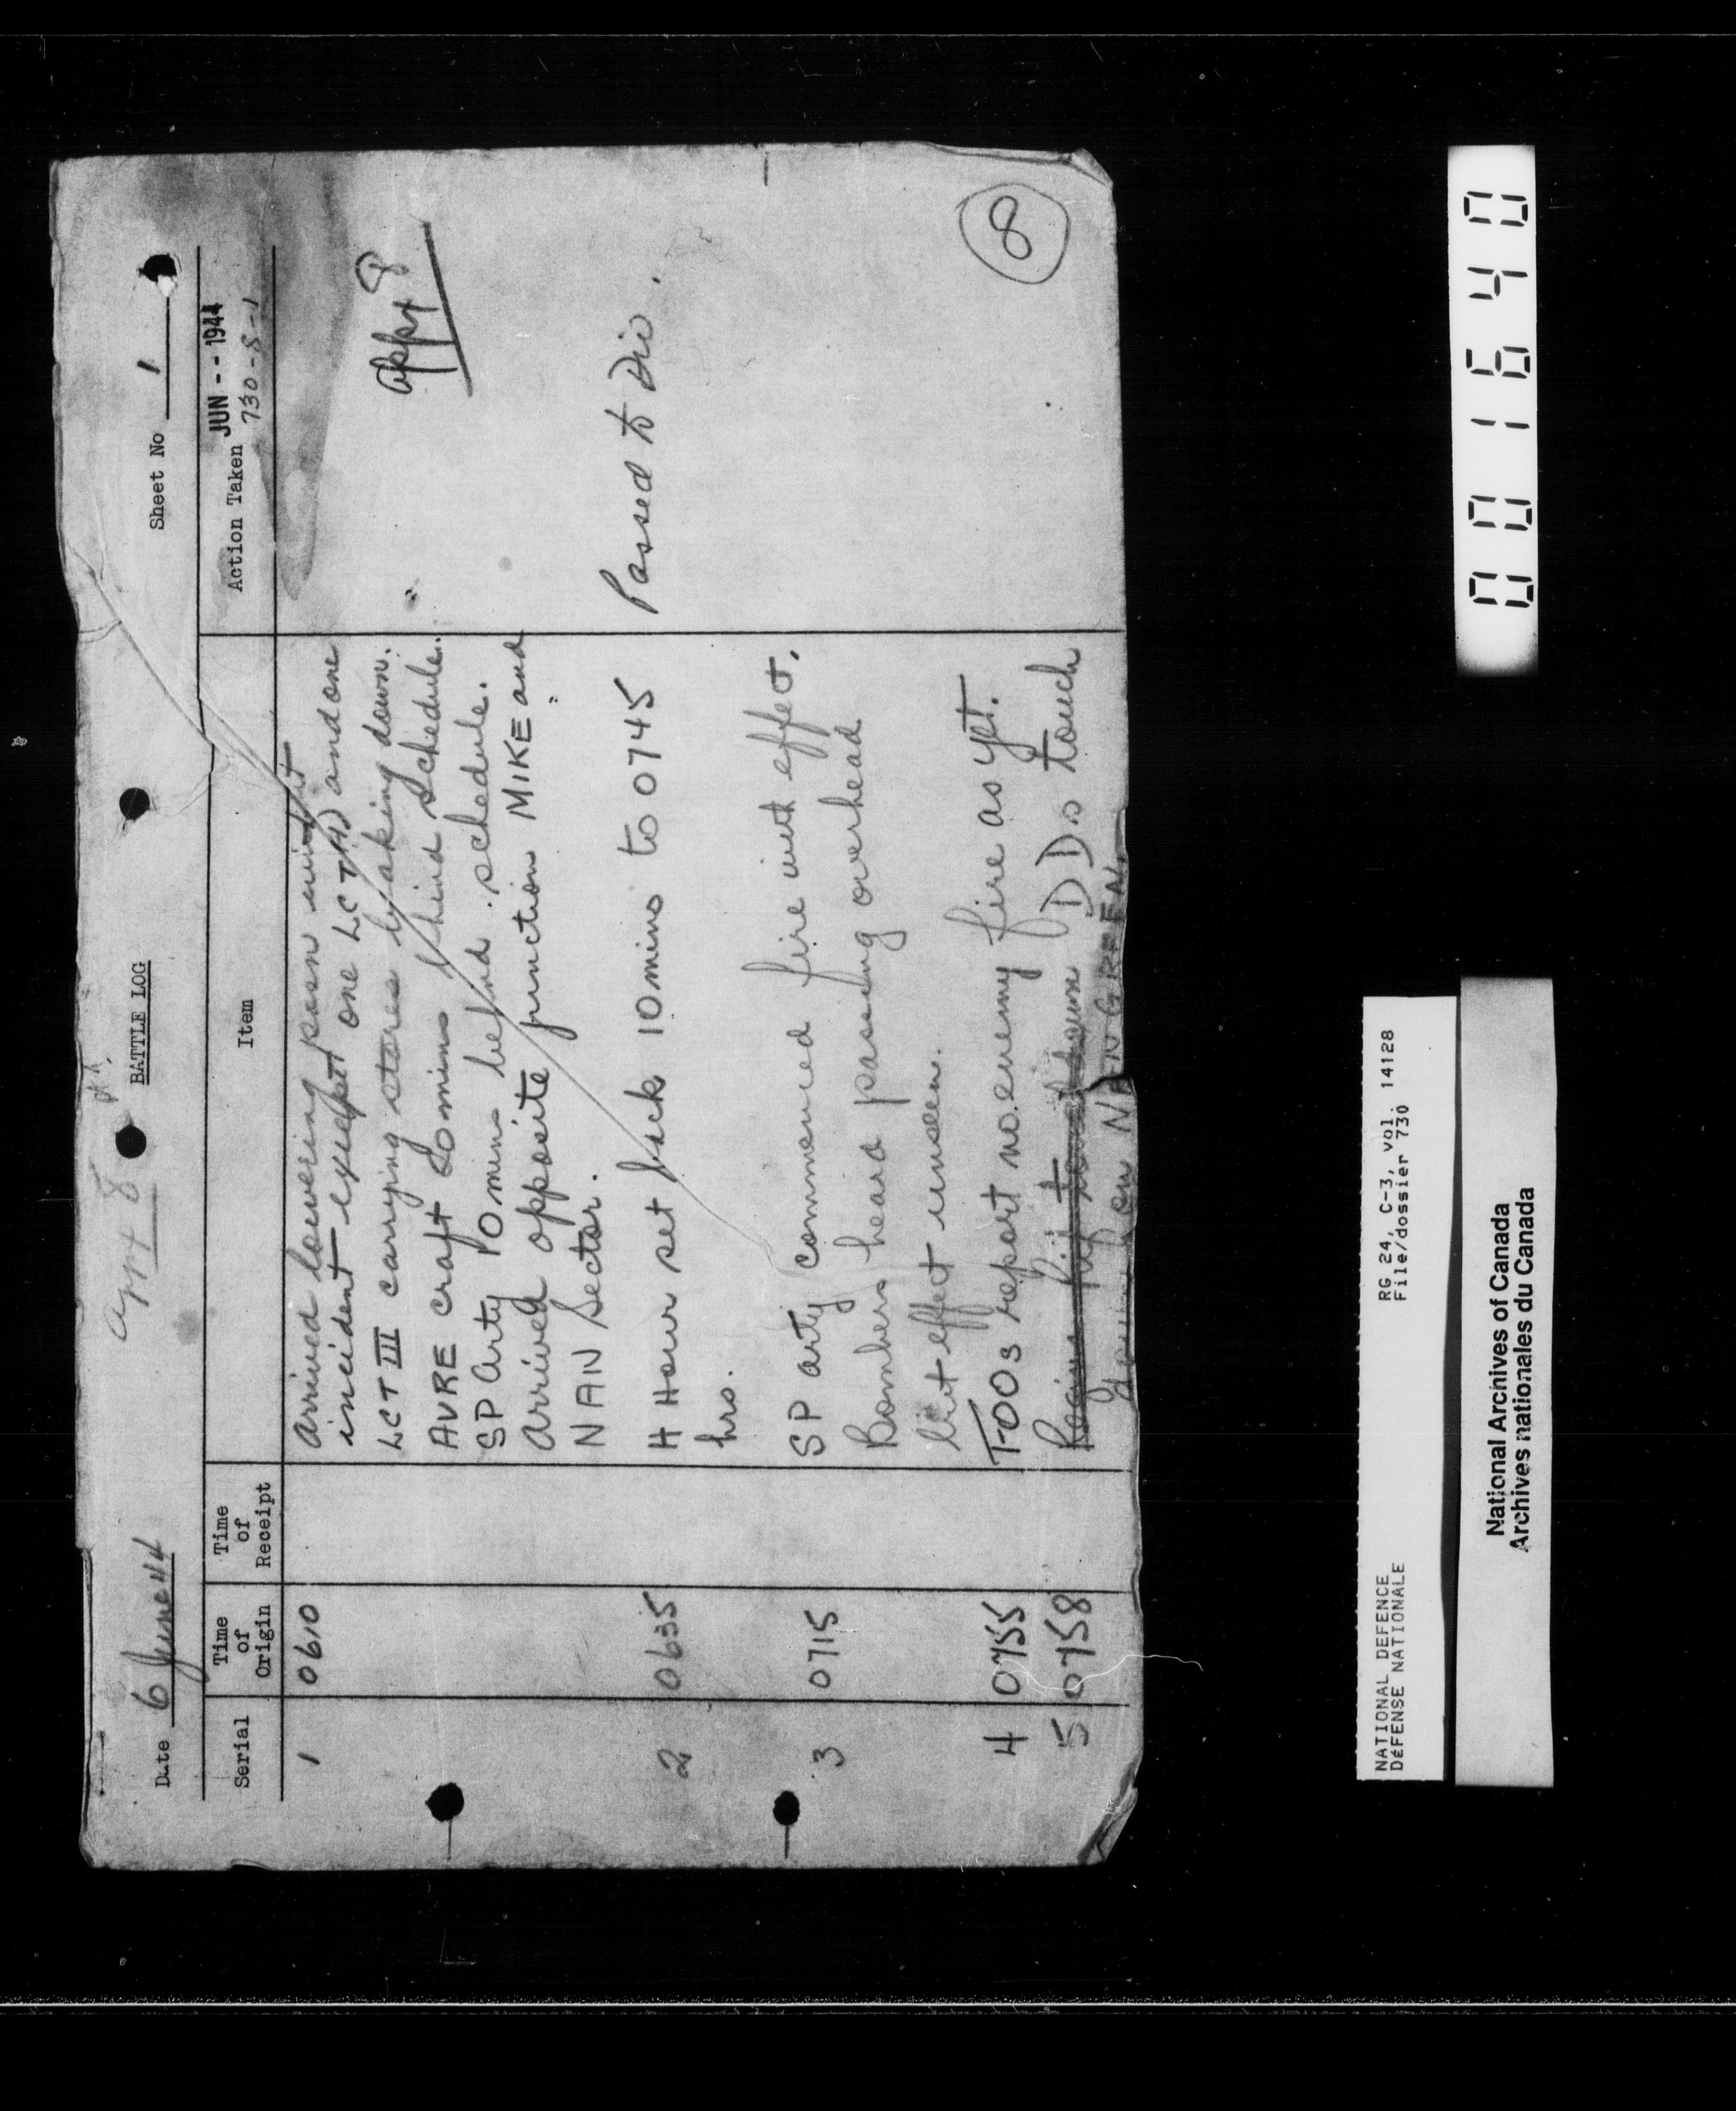 Appx 8
BATTLE LOG
Date 6 June 44
Sheet No 1
Serial
Time of Origin
Time of Receipt
Item
Action Taken
JUN -- 1944
730-S-1
Appx 8
1 0610 Arrived lowering posn without
incident except one LCT(A) and one
LCT III carrying stores breaking down.
AVRE craft 20 mins behind schedule.
SP Arty 10 mins behind schedule.
Arrived opposite junction MIKE and
NAN Sector.
2 0635 H Hour set back 10 mins to 0745 Passed to Div.
hrs.
3 0715 SP arty commenced fire with effect.
Bombers heard passing overhead
but effect unseen.
4 0755 FOOs report no enemy fire as yet.
5 0758 Regina Rif DDs touch
down on NAN GREEN.
8
0001640
NATIONAL DEFENCE RG 24, C-3, vol. 14128
DéFENSE NATIONALE File/dossier 730
National Archives of Canada
Archives nationales du Canada